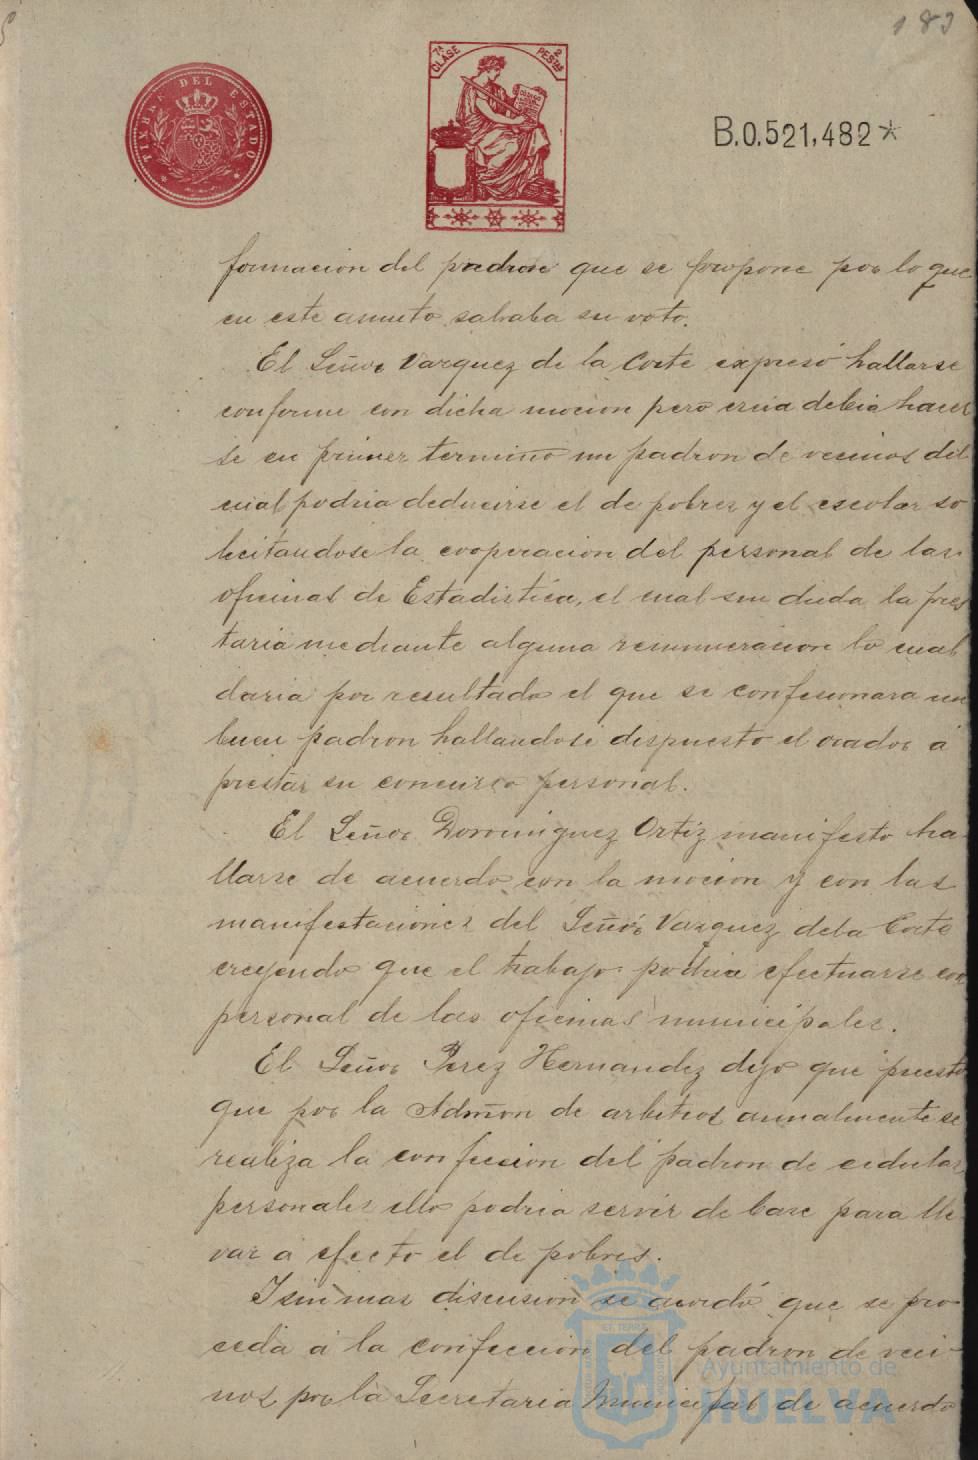 183
TIMBRE DEL ESTADO
7ª CLASE
2 PESTAS
B.0.521,482*
formacion del padron que se propone por lo que
en este asunto salvaba su voto.
El Señor Vazquez de la Corte expresó hallarse
conforme con dicha mocion pero creia debia hacer
se en primer termino un padron de vecinos del
cual podria deducirse el de pobres y el escolar so
licitandose la cooperacion del personal de las
oficinas de Estadistica, el cual sin duda la pres
taria mediante alguna remuneracion lo cual
daria por resultado el que se confesionara un
buen padron hallandose dispuesto el orador á
prestar su concurso personal.
El Señor Dominguez Ortiz manifesto ha-
llarse de acuerdo con la mocion y con las
manifestaciones del Señor Vazquez de la Corte
creyendo que el trabajo podria efectuarse con
personal de las oficinas municipales.
El Señor Perez Hernandez dijo que puesto
que por la Admon de arbitrios anualmente se
realiza la confeccion del padron de cedulas
personales ello podria servir de base para lle-
var á efecto el de pobres.
I sin mas discusion se acordó que se pro-
ceda á la confeccion del padron de veci-
nos por la Secretaria Municipal de acuerdo
Ayuntamiento de
HUELVA